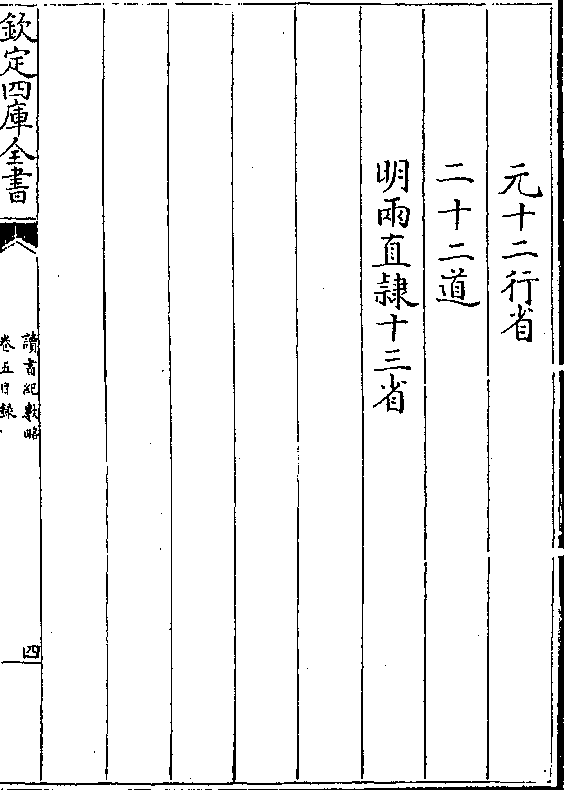 元十二行省
二十二道
明兩直隸十三省
欽定四庫全書
讀書紀數略
卷五目錄
四